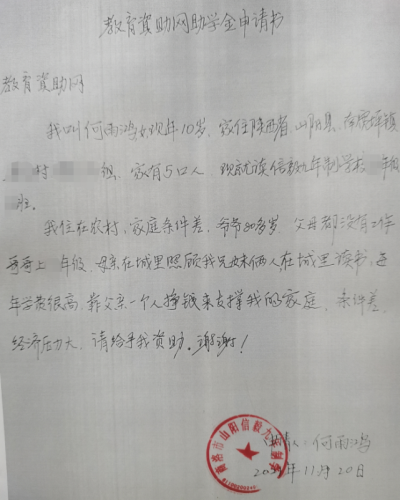 教育资助网助学金申请书
教育资助网
我叫何雨鸿,女,现年10岁,家住陕西省,山阳县,
村 组,家有5口人,现就读信毅九年制学校 年级
班。
我住在农村,家庭条件差,爷爷80多岁,父母都没有工作
哥哥上 年级,母亲在城里照顾我兄妹俩人在城里读书,每
年学费很高,靠父亲一个人挣钱来支撑我的家庭,条件差,
经济压力大,请给予我资助,谢谢!
申请人:何雨鸿
年11月20日